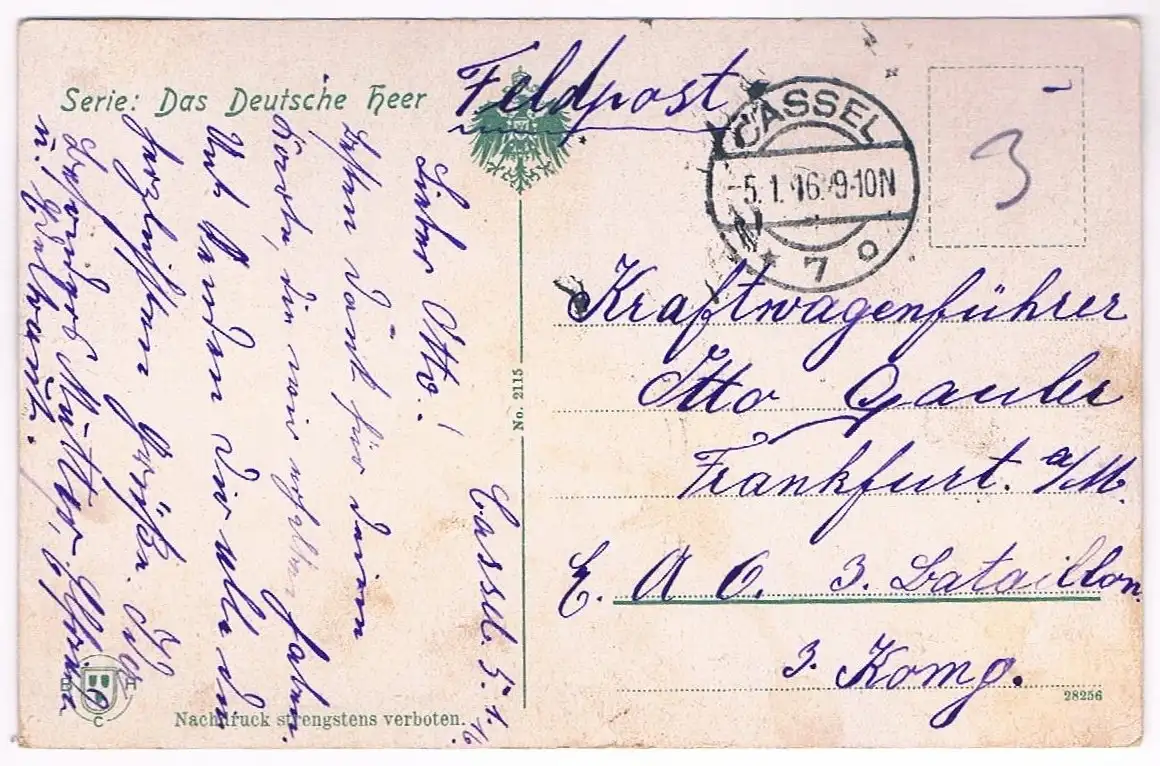 Serie: Das Deutsche Heer
Feldpost
CASSEL
-5.1.16.9-10N
* 7 o
3
Cassel. 5.1.16.
Lieber Otto!
Besten Dank für deine
Karte, die wir erhalten haben.
Wir senden dir alle die
herzlichsten Grüße.
besonders Mutter,
u.
No. 2115
Kraftwagenführer
Otto Gauler
Frankfurt. a/M.
E. A. C. 3. Bataillon.
3. Komg.
28256
Nachdruck strengstens verboten.